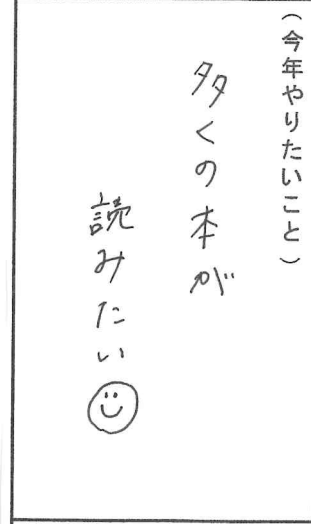 （今年やりたいこと）
多くの本が
読みたい☺